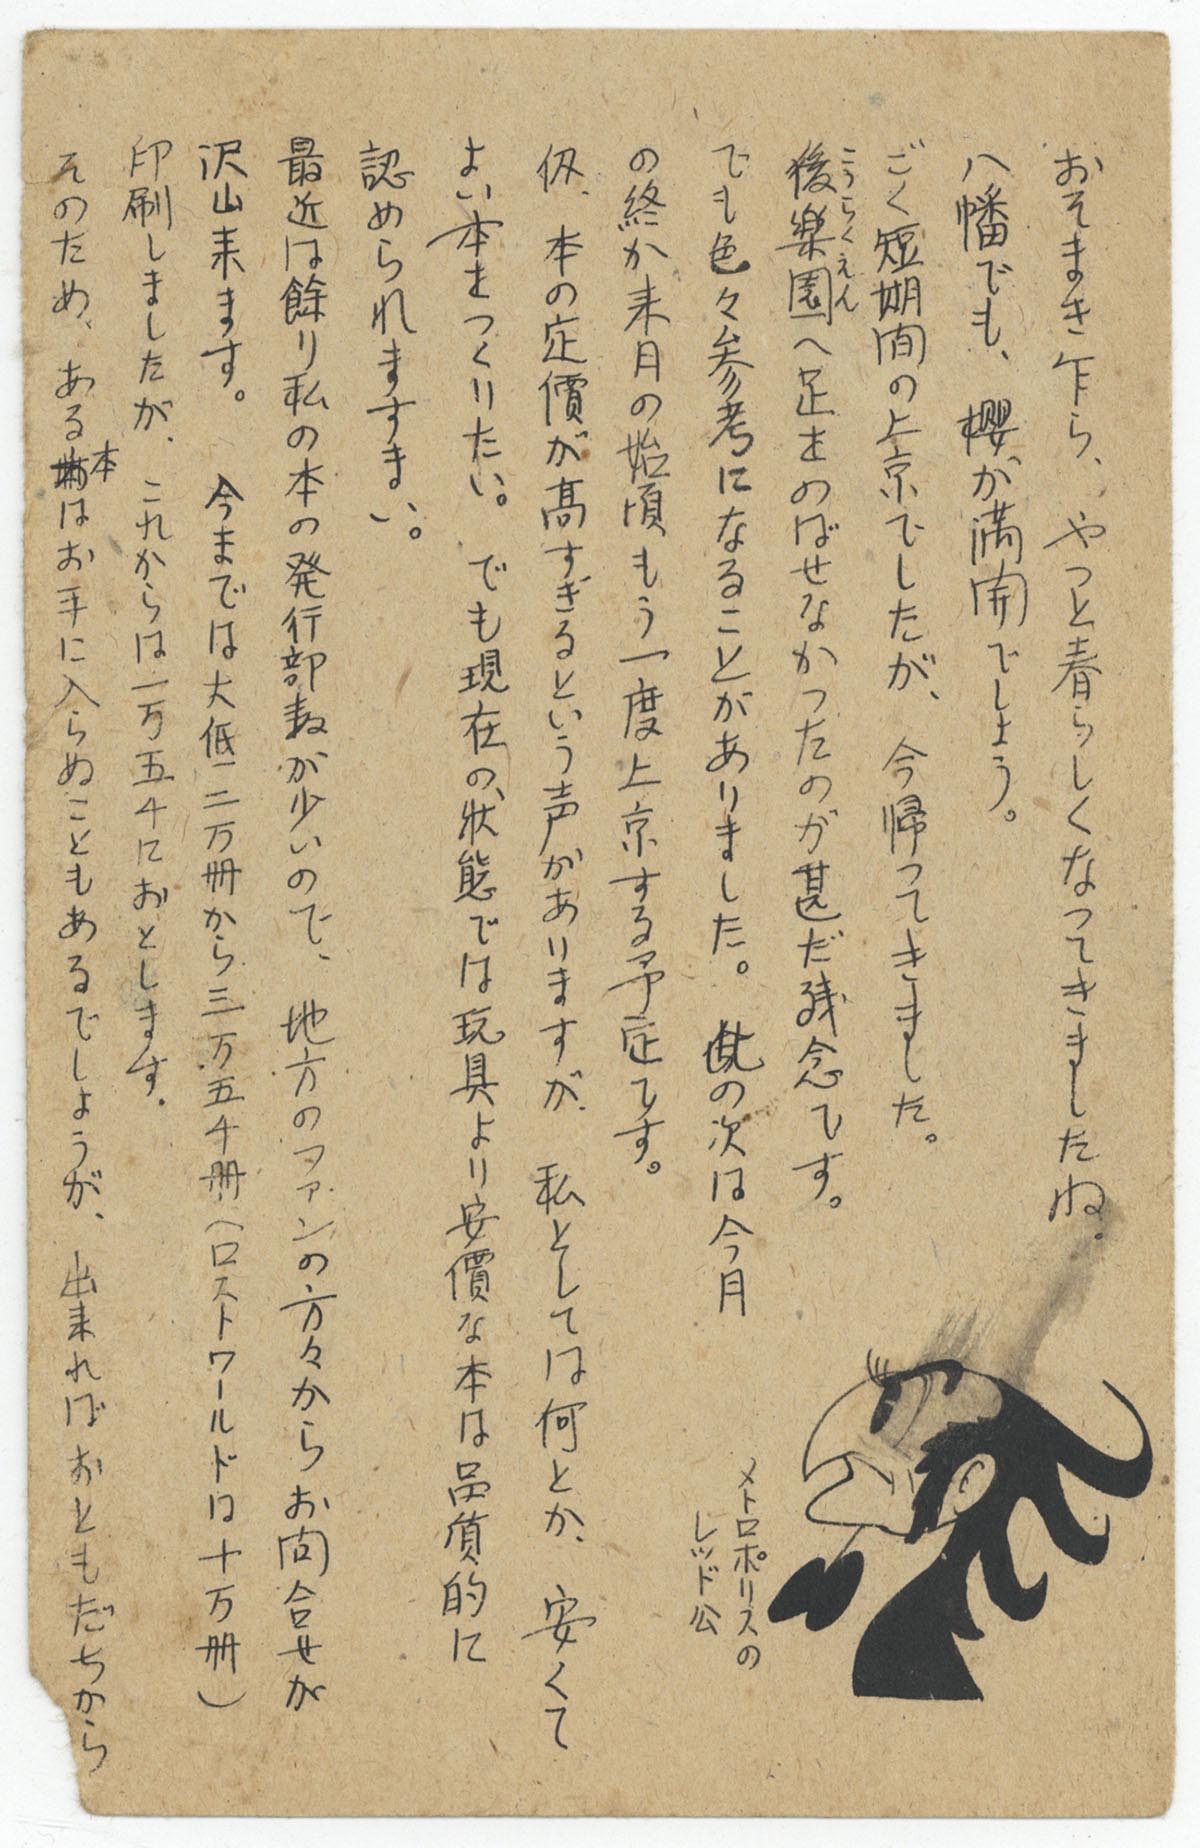 おそまき乍ら、やっと春らしくなってきましたね。
八幡でも、櫻が満開でしょう。
ごく短期間の上京でしたが、今帰ってきました。
後楽園へ足をのばせなかったのが甚だ残念です。
こうらくえん
でも色々参考になることがありました。此の次は今月
の終か来月の始頃、もう一度上京する予定です。
扨、本の定價が高すぎるという声がありますが、私としては何とか、安くて
よい本をつくりたい。でも現在の状態では玩具より安價な本は品質的に
認められますまい。
最近は餘り私の本の発行部数が少いので、地方のファンの方々からお問合せが
沢山来ます。今までは大低二万冊から三万五千冊(ロストワールドは十万冊)
印刷しましたが、これからは一万五千におとします。
そのため、ある本はお手に入らぬこともあるでしょうが、出来ればおともだちから
メトロポリスの
レッド公